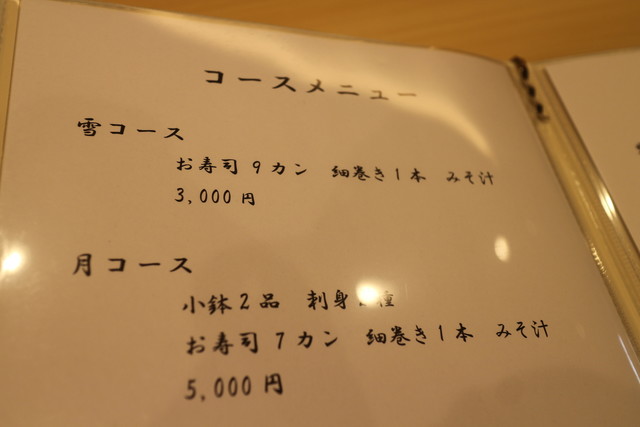 コースメニュー
雪コース
お寿司 9カン 細巻き1本 みそ汁
3,000円
月コース
小鉢2品 刺身 種
お寿司 7カン 細巻き1本 みそ汁
5,000円